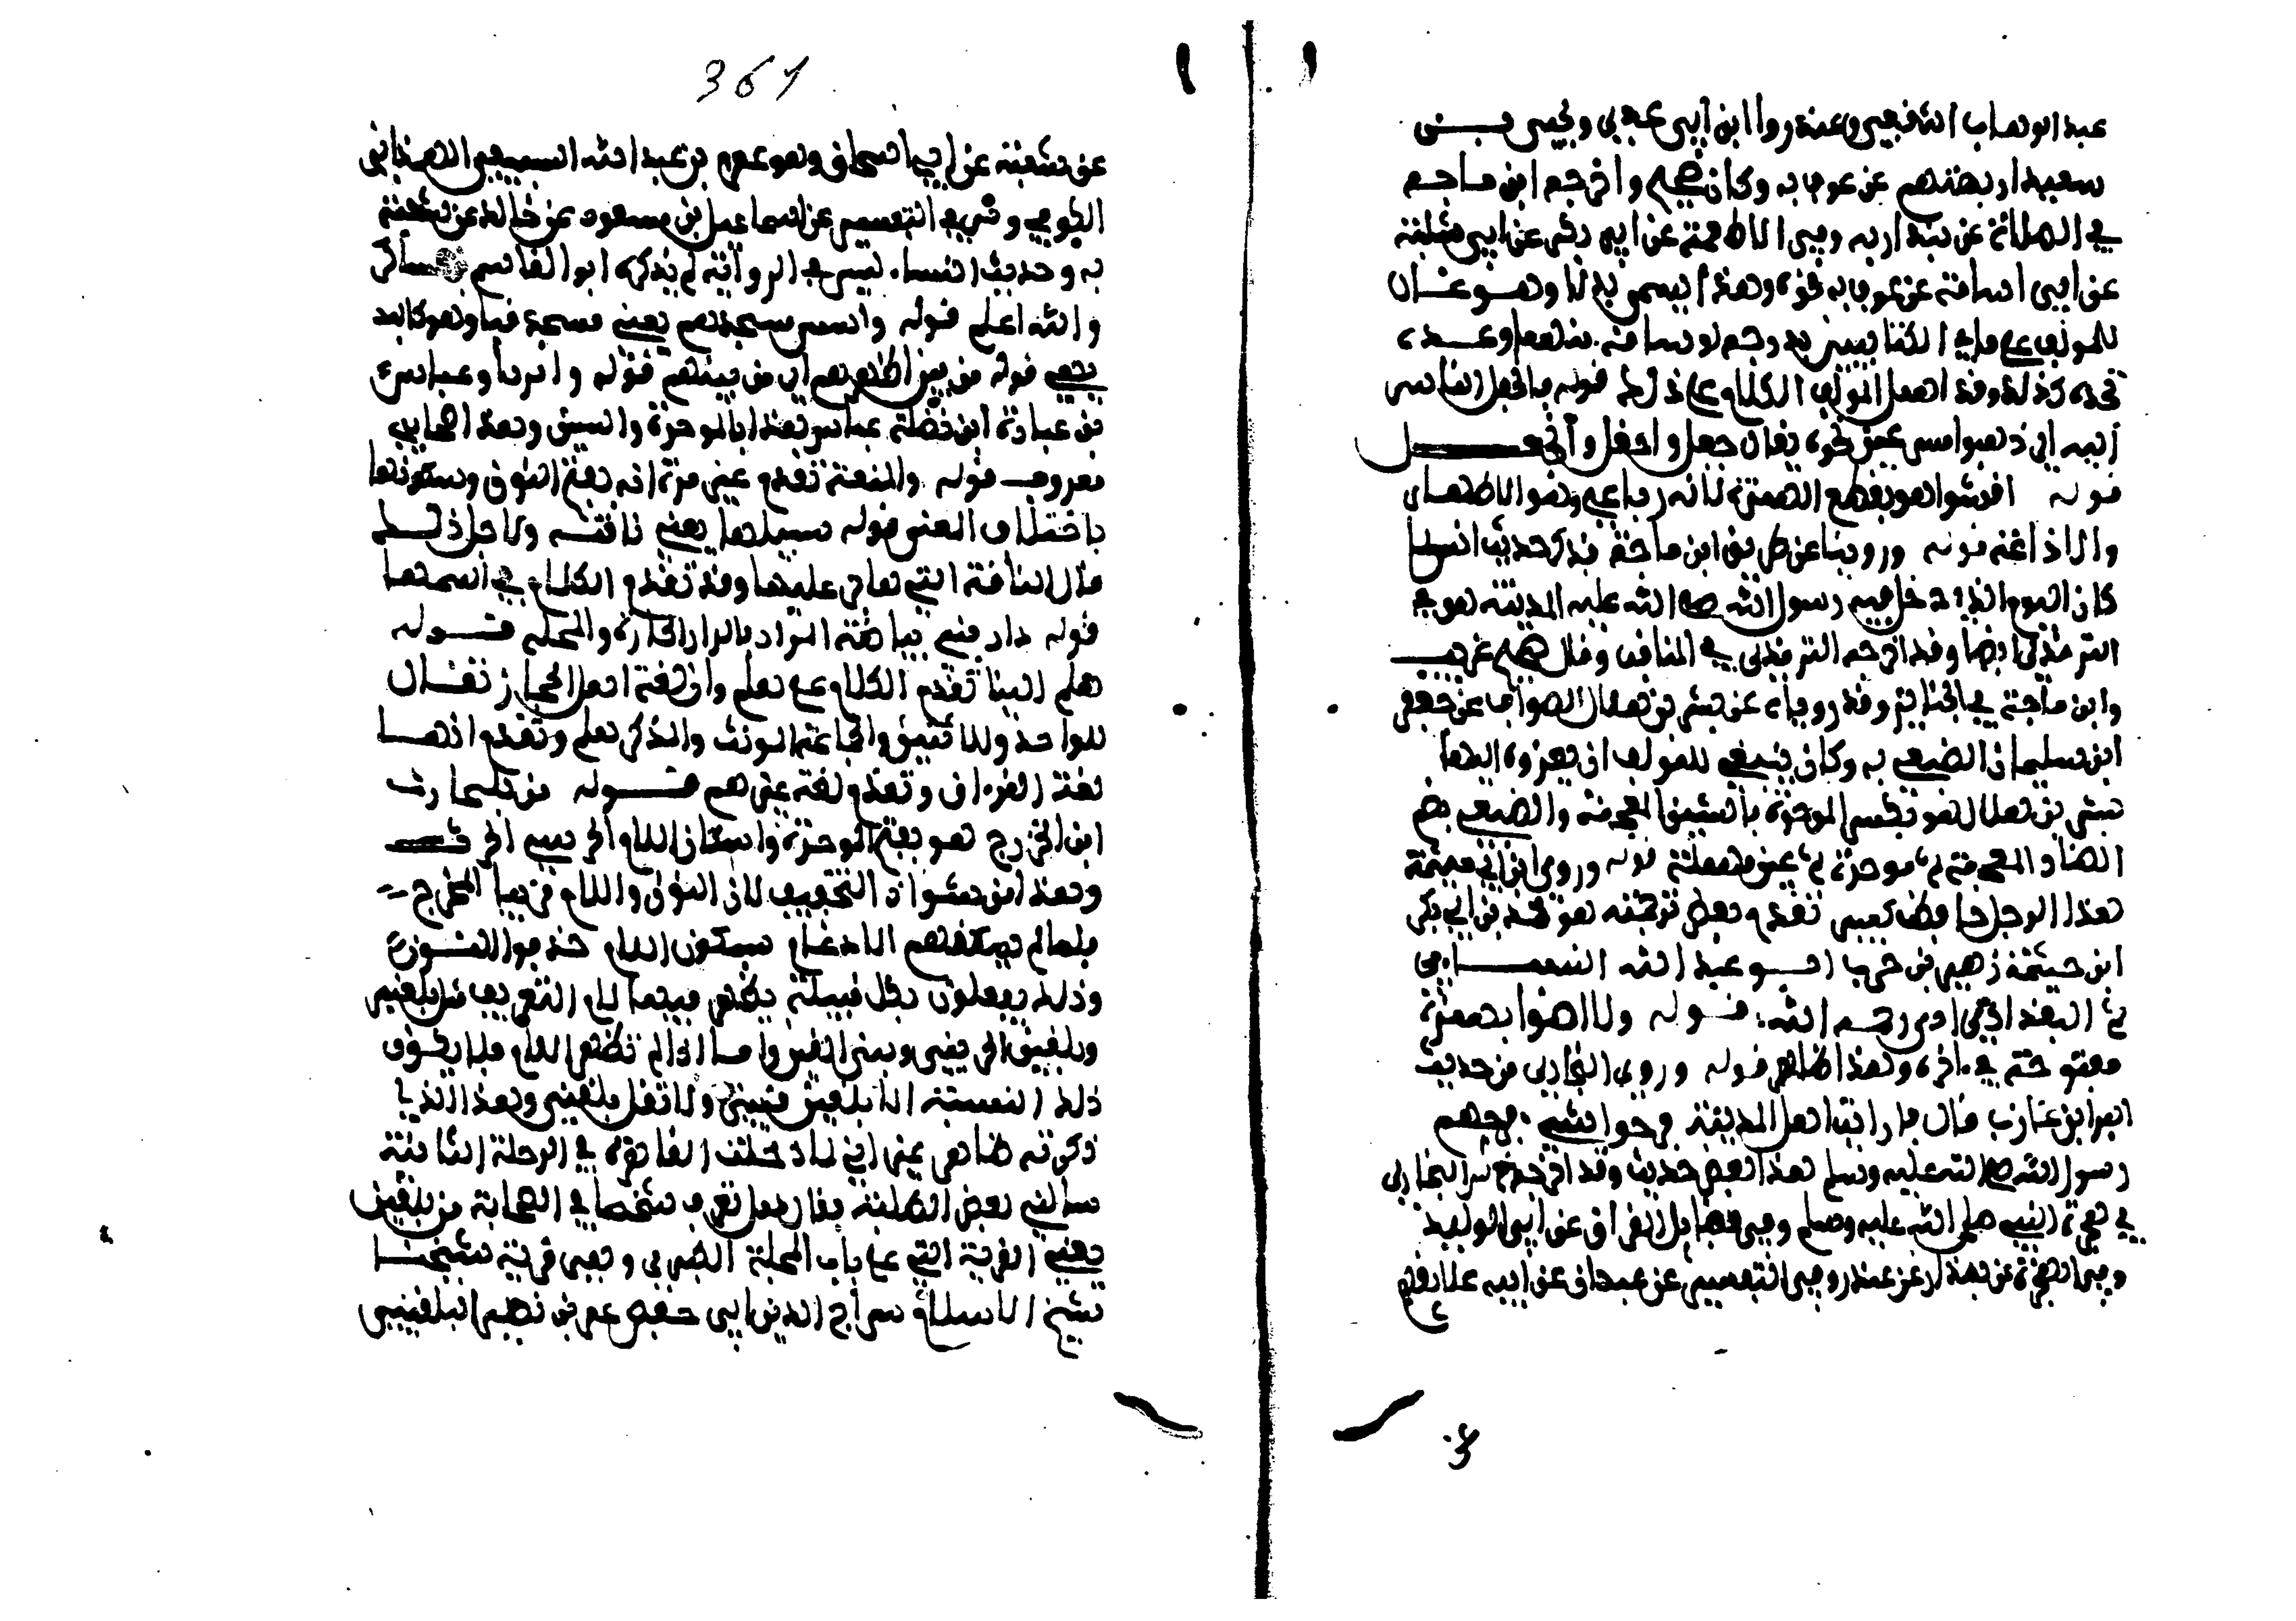 عبد الوهاب الثقفي وعندروا ابن أبي عدي ويحيى بن
سعيد اربعتهم عن عوف به وقال صحيح واخرجه ابن ماجه
في الصلاة عن بندار به وفي الاطعمة عن ابي بكر بن ابي شيبة
عن ابي اسامة عن عوف به نحوه وهذا ليس بدلا وهو
للمولف على ما في الكتاب
كذلك وقد اهمل المولف الكلام على ذلك قوله فانجفل الناس
اليه اي ذهبوا مسرعين نحوه يقال جفل واجفل وانجفل
قوله افشوا هو بقطع الهمزة لانه رباعي وهو الاظهار
والاذاعة قوله وروينا عن طريق ابن ماجة فذكر حديث انس لما
كان اليوم الذي دخل فيه رسول الله صلى الله عليه المدينة هو في
الترمذي ايضا وقد اخرجه الترمذي في المناقب وقال صحيح غريب
وابن ماجة في الجنائز وقد روياه عن بشر بن هلال الصواف عن جعفر
ابن سليمان الضبعي به وكان ينبغي للمولف ان يعزوه اليهما
بشر بن هلال هو بكسر الموحدة بالشين المعجمة والضبعي بضم
الضاد المعجمة ثم موحدة ثم عين مهملة قوله وروى ابن ابي خيثمة
هذا الرجل حافظ كبير تقدم بعض ترجمته هو محمد بن ابي بكر
ابن خيثمة زهير بن حرب ابو عبد الله النسائي
ثم البغدادي رحمه الله قوله ولا اضوا بهمزة
مفتوحة في اخره وهذا ظاهر قوله وروى البخاري من حديث
البرا بن عازب قال ما رايت اهل المدينة فرحوا بشيء فرحهم
رسول الله صلى الله عليه وسلم هذا بعض حديث وقد اخرجه البخاري
في هجرة النبي صلى الله عليه وسلم وفي فضايل القران عن ابي الوليد
وفي الهجرة عن بندار عن غندر وفي التفسير عن عبدان عن ابيه
361
عن شعبة عن ابي اسحاق وهو عمرو بن عبد الله السبيعي الهمداني
الكوفي و في التفسير عن اسماعيل بن مسعود عن خالد عن شعبة
به وحديث النسا ليس في الرواية لم يذكره ابو القاسم بن عساكر
والله اعلم قوله واسس مسجدهم يعني مسجد قبا وهو
قوله من بين اظهرهم اي من بينهم قوله واتوا عباس
بن عبادة ابن نضلة عباس هذا بالموحدة والسين وهذا صحابي
معروف قوله والمنعة تقدم غير مرة انه بفتح النون وسكونها
باختلاف المعنى قوله سبيلها يعني ناقته ولاجل ذلك
قال الناقة التي هاجر عليها وقد تقدم الكلام في اسمها
قوله دار بني بياضة المراد بالدار الحارة والمحلة قوله
هلم الينا تقدم الكلام على هلم وان لغة اهل الحجاز تقال
للواحد وللاثنين والجماعة المونث والذكر هلم وتقدم انها
لغة القران وتقدم لغة غيرهم قوله من بلحارث
ابن الخزرج هو بفتح الموحدة واسكان اللام
وهذا من شواذ التخفيف لان النون واللام قريبا المخرج
فلما لم يمكنهم الادغام بسكون اللام حذفوا النون
وذلك يفعلون بكل قبيلة يظهر فيها لام التعريف مثل بلعنبر
وبلقين اي بني العنبر وبني القين واما اذا لم تظهر اللام فلا يكون
ذلك النسبة الى بلقين قيني ولا تقل بلقيني وهذا الذي
ذكرته ظاهر غير اني لما دخلت القاهرة في الرحلة الثانية
سالني بعض الطلبة فقال هل تعرف شخصا في الصحابة من بلقين
يعني القرية التي على باب المحلة الكبرى وهي قرية شيخنا
شيخ الاسلام سراج الدين ابي حفص عمر بن نصير البلقيني